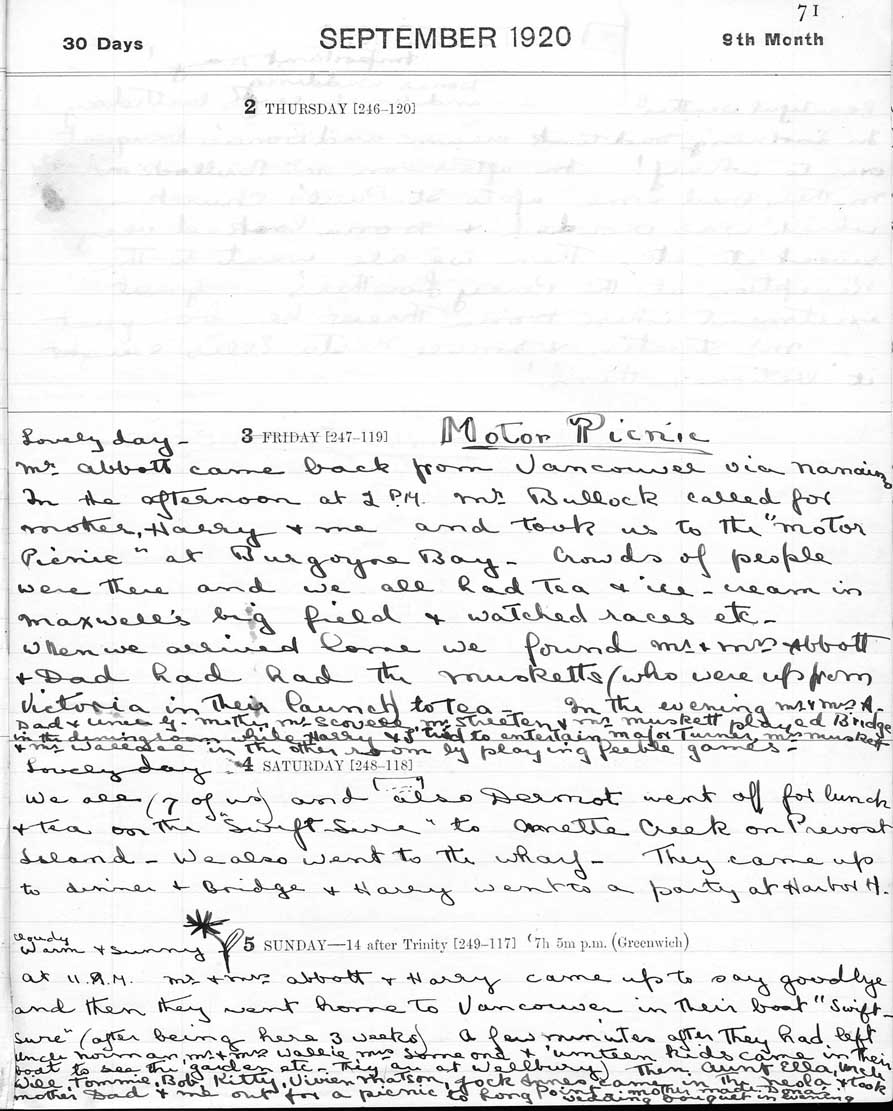 71
30 Days SEPTEMBER 1920 9th Month
2 THURSDAY [246–120]
Lovely day – 3 FRIDAY [247–119] Motor Picnic
Mr Abbott came back from Vancouver via Nanaimo
In the afternoon at 2 P.M. Mr Bullock called for
mother, Harry & me and took us to the "Motor
Picnic" at Burgoyne Bay – Crowds of people
were there and we all had tea & ice-cream in
Maxwell's big field & watched races etc –
When we arrived home we found Mr & Mrs Abbott
& Dad had had the Musketts (who were up from
Victoria in their launch) to tea – In the evening Mr & Mrs A.
Dad & Uncle G. Mother, Mr Scovell, Mr Streeten & Mr Muskett played Bridge
in the diningroom while Harry & I tried to entertain Major Turner, Mrs Muskett
& Mr Wallace in the other room by playing feeble games –
Lovely day 4 SATURDAY [248–118]
We all (7 of us) and also Dermot went off for lunch
& tea on the "Swift-Sure" to Annette Creek on Prevost
Island – We also went to the wharf – They came up
to dinner & Bridge & Harry went to a party at Harbor H.
cloudy
Warm & sunny 5 SUNDAY—14 after Trinity [249–117] 7h 5m p.m. (Greenwich)
at 11. A.M. Mr & Mrs Abbott & Harry came up to say goodbye
and then they went home to Vancouver in their boat "Swift-
Sure" (after being here 3 weeks) A few minutes after they had left
Uncle Norman, Mr & Mrs Wallie Mrs Some one & umteen kids came in their
boat to see the garden etc – They are at Wellbury) Then Aunt Ella, Uncle
Will, Tommie, Bob, Kitty, Vivien Matson, Jock Innes came in the & took
mother Dad & me out for a picnic to Long Point – mother made
wedding bouquet in evening